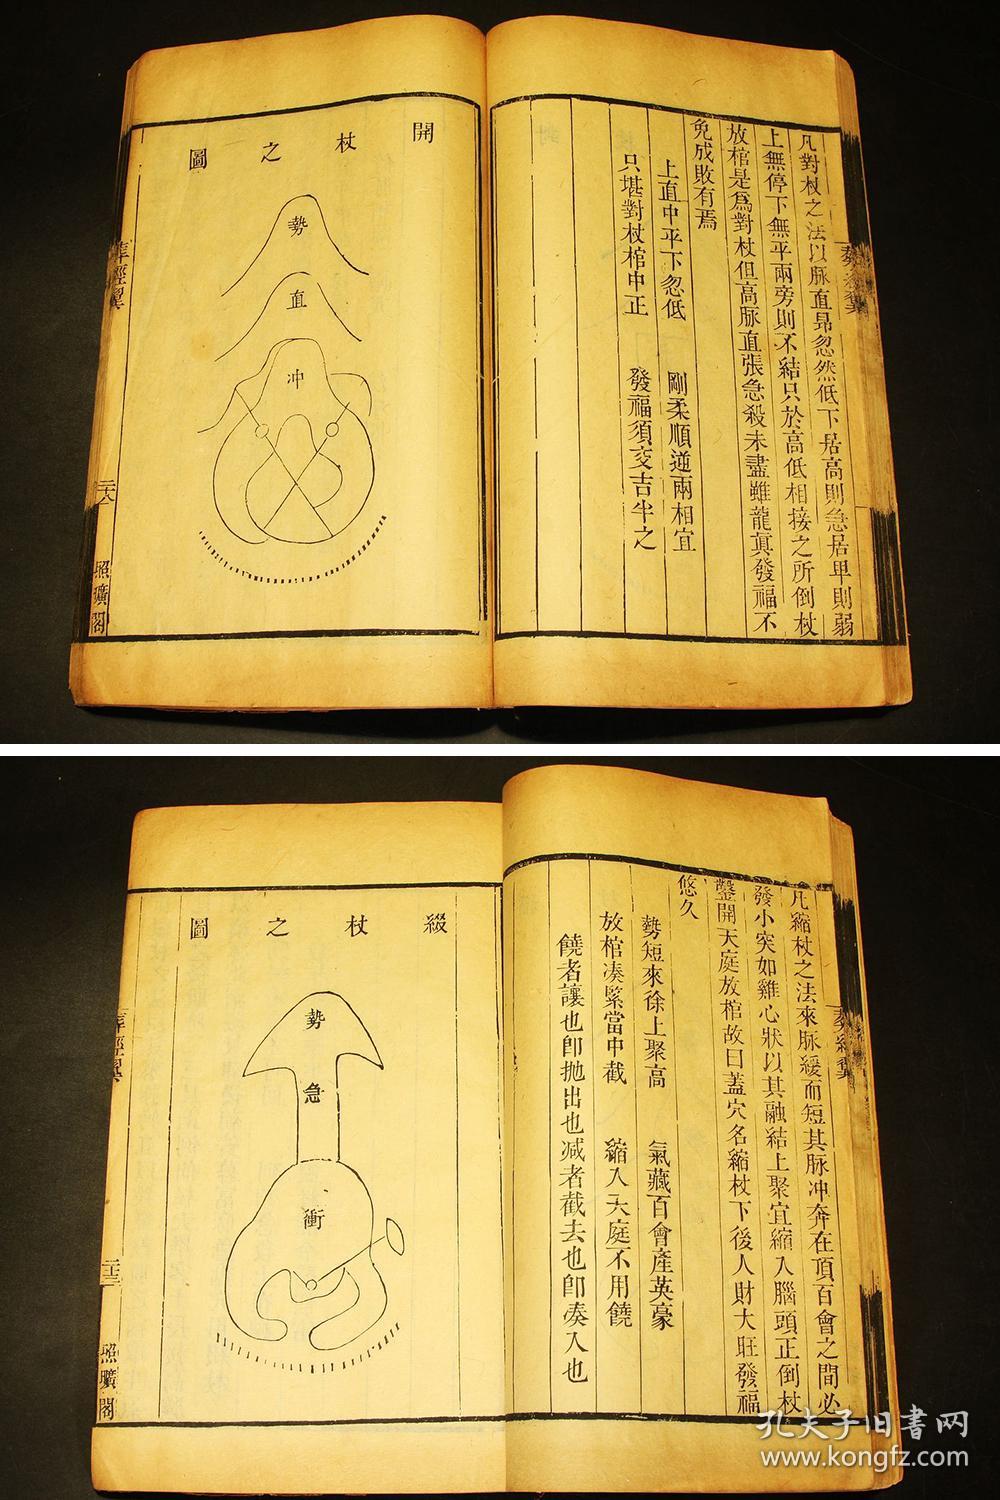 凡對杖之法以脉直昂忽然低下居高則急居卑則弱
上無停下無平兩旁則不結只於高低相接之所倒杖
放棺是爲對杖但高脉直張急殺未盡雖龍真發福不
免成敗有焉
上直中平下忽低　剛柔順逆兩相宜
只堪對杖棺中正　發福須交吉半之
開杖之圖
勢
直
冲
葬經翼
二十八
照曠閣
凡縮杖之法來脉緩而短其脉冲奔在頂百會之間必
發小突如雞心狀以其融結上聚宜縮入腦頭正倒杖
鑿開天庭放棺故曰蓋穴名縮杖下後人財大旺發福
悠久
勢短來徐上聚高　氣藏百會產英豪
放棺凑緊當中截　縮入天庭不用饒
饒者讓也卽拋出也减者截去也卽凑入也
綴杖之圖
勢
急
衝
葬經翼
照曠閣
孔夫子旧書网
www.kongfz.com